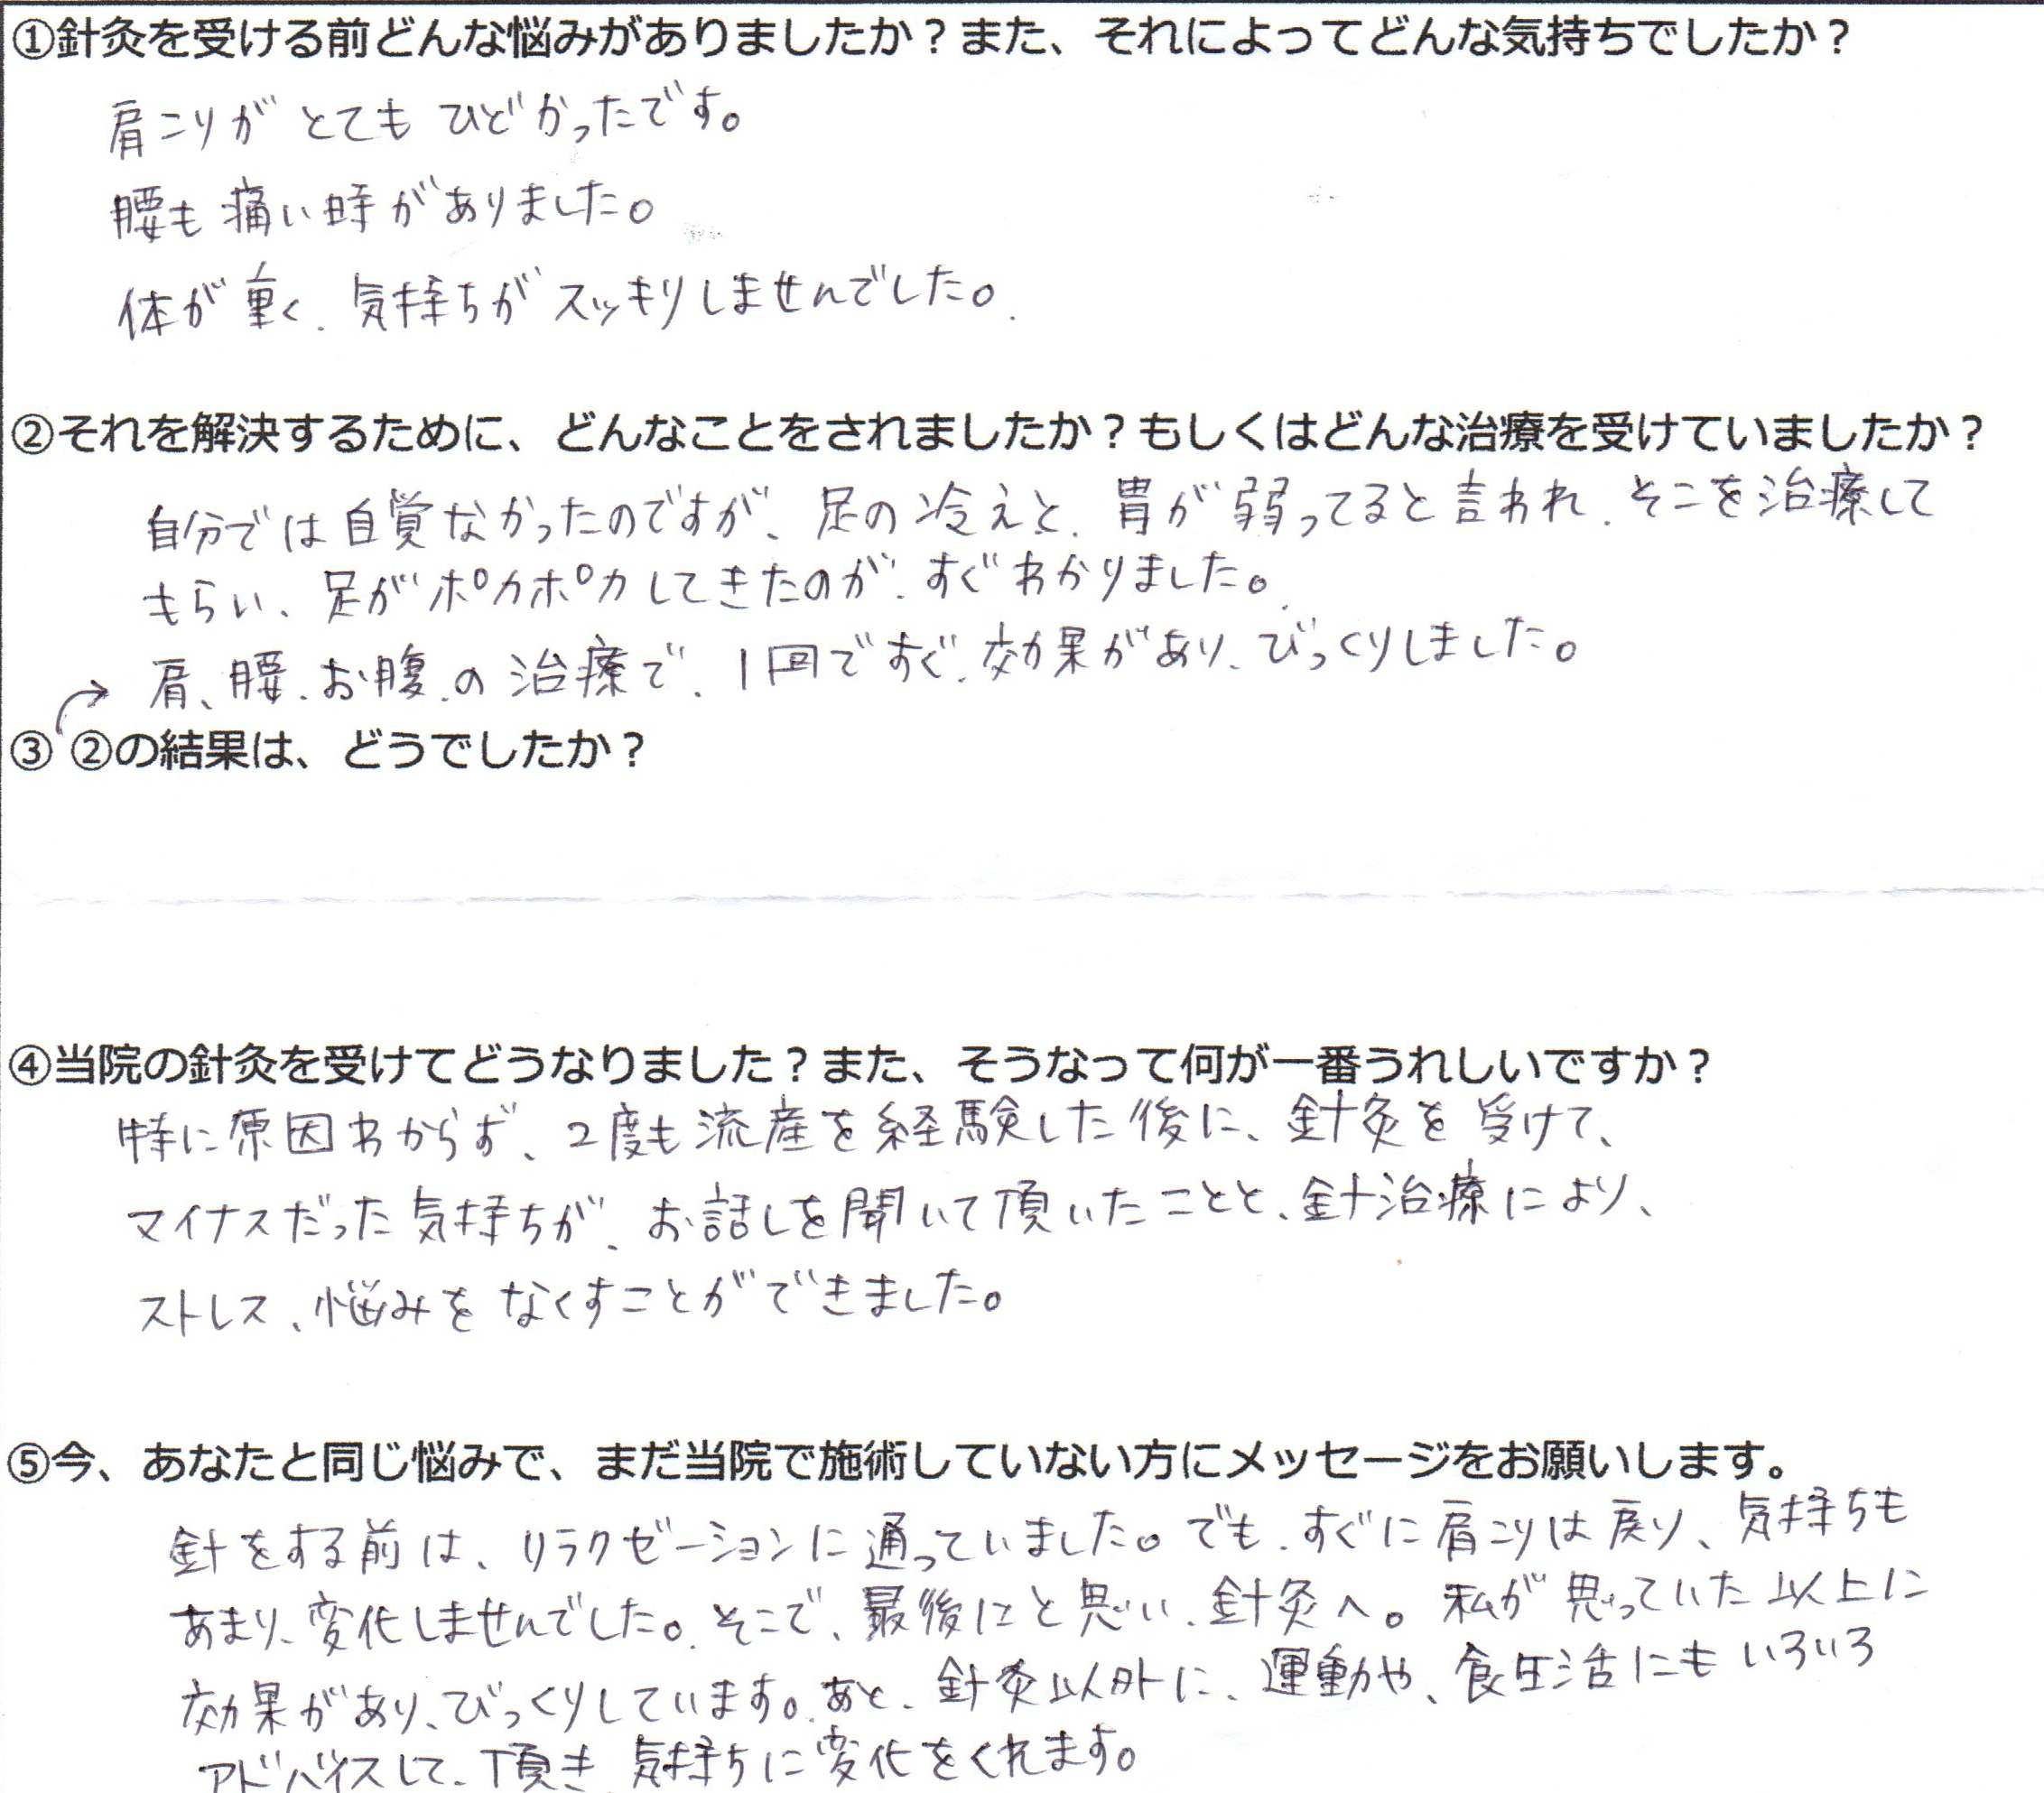 ①針灸を受ける前どんな悩みがありましたか？また、それによってどんな気持ちでしたか？
肩こりがとてもひどかったです。
腰も痛い時がありました。
体が重く、気持ちがスッキリしませんでした。
②それを解決するために、どんなことをされましたか？もしくはどんな治療を受けていましたか？
自分では自覚なかったのですが、足の冷えと、胃が弱ってると言われ、そこを治療して
もらい、足がポカポカしてきたのが、すぐわかりました。
→肩、腰、お腹、の治療で、1回ですぐ、効果があり、びっくりしました。
③ ②の結果は、どうでしたか？
④当院の針灸を受けてどうなりました？また、そうなって何が一番うれしいですか？
特に原因わからず、2度も流産を経験した後に、針灸を受けて、
マイナスだった気持ちが、お話しを聞いて頂いたことと、針治療により、
ストレス、悩みをなくすことができました。
⑤今、あなたと同じ悩みで、まだ当院で施術していない方にメッセージをお願いします。
針をする前は、リラクゼーションに通っていました。でも、すぐに肩こりは戻り、気持ちも
あまり、変化しませんでした。そこで、最後にと思い、針灸へ。私が思っていた以上に
効果があり、びっくりしています。あと、針灸以外に、運動や、食生活にもいろいろ
アドバイスして、頂き、気持ちに変化をくれます。